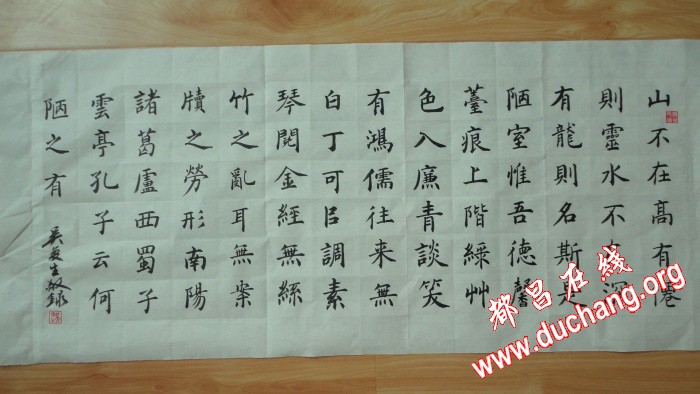 山不在高有僊
則靈水不深
有龍則名斯是
陋室惟吾德馨
薹痕上階綠艸
色入廉青談笑
有鴻儒往来無
白丁可㠯調素
琴閱金經無絲
竹之亂耳無案
牘之勞形南陽
諸葛盧西蜀子
雲亭孔子云何
陋之有
生敬録
都昌在线
www.duchang.org